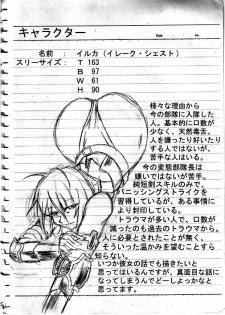 キャラクター
Date
名前 : イルカ（イレーク・シェスト）
スリーサイズ： T 163
B 97
W 61
H 90
様々な理由から
今の部隊に入隊した
人。基本的に口数が
少なく、天然毒舌。
人を嫌ったり好いたり
する人ではないが、
苦手な人はいる。
今の変態部隊長は
嫌いではないが苦手。
純短剣スキルのみで、
バニッシングストライクを
習得しているが、ある事情に
より封印している。
トラウマが多い人で、口数が
減ったのも過去のトラウマから。
人に必要とされたことが無く、
そういった温かみを望むことすら
知らない。
いつか彼女の話でも描きたいと
思ってはいるんですが、真面目な話に
なってしまうんでどーしよっかなと
思ってます。